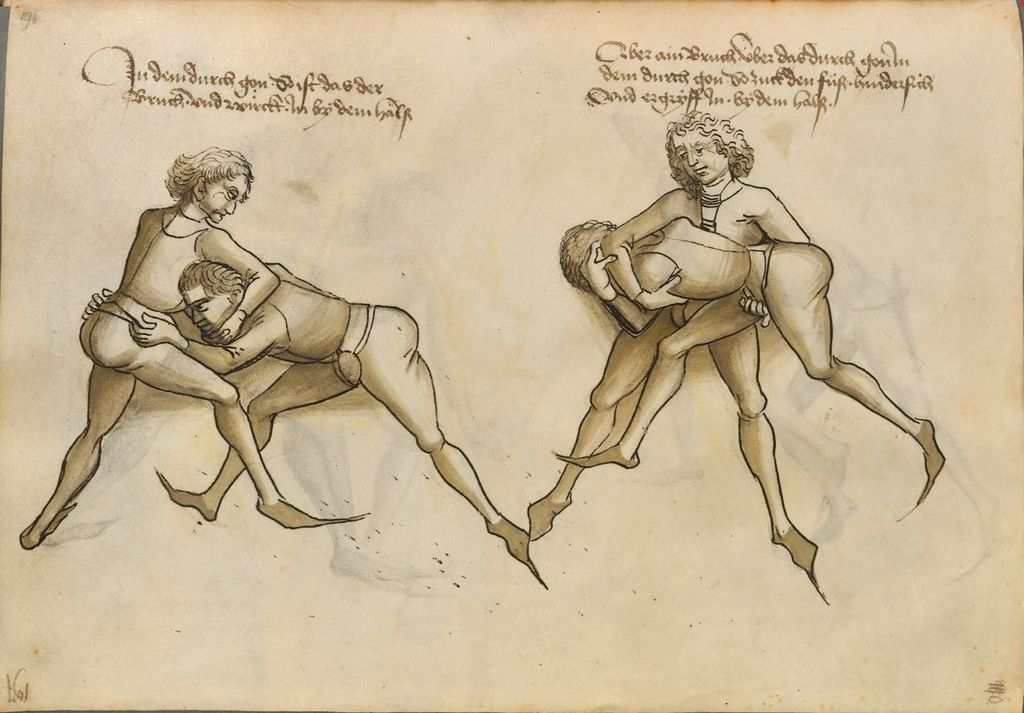 In dem durch gon So ist das der
Bruch und würckt In by dem hals
Aber ain Bruch über das durch gon In
dem durch gon So zuck den füß hindersich
Vnd ergryff In by dem hals